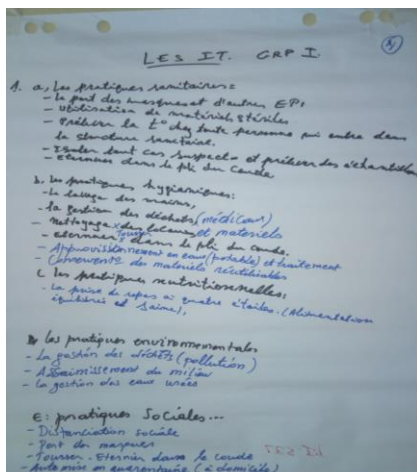 LES IT. GRP I.
1. a, Les pratiques sanitaires:
- Le port des masques et d'autres EPI
- Utilisation de matériels stériles.
- Prélever la t° chez toute personne qui entre dans
la structure sanitaire.
- Isoler tout cas suspects et prélever des échantillons
- Eternuer dans le pli du coude.
b. Les pratiques hygiéniques:
- Le lavage des mains,
- la gestion des déchets (médicaux)
- Nettoyage des locaux et materiels
- Tousser eternuer dans le pli du coude.
- Approvisionnement en eau (potable) et traitement
- des materiels réutilisables
C Les pratiques nutritionnelles:
- La prise de repas à quatre étoiles. (Alimentation
équilibrée et saine),
les pratiques environnementales
- La gestion des déchets (pollution)
- Assainissement du milieu
- La gestion des eaux usées
E: pratiques sociales...
- Distanciation sociale
- Port des masques
- Tousser - Eternuer dans le coude
- mise en quarantaine (à domicile)